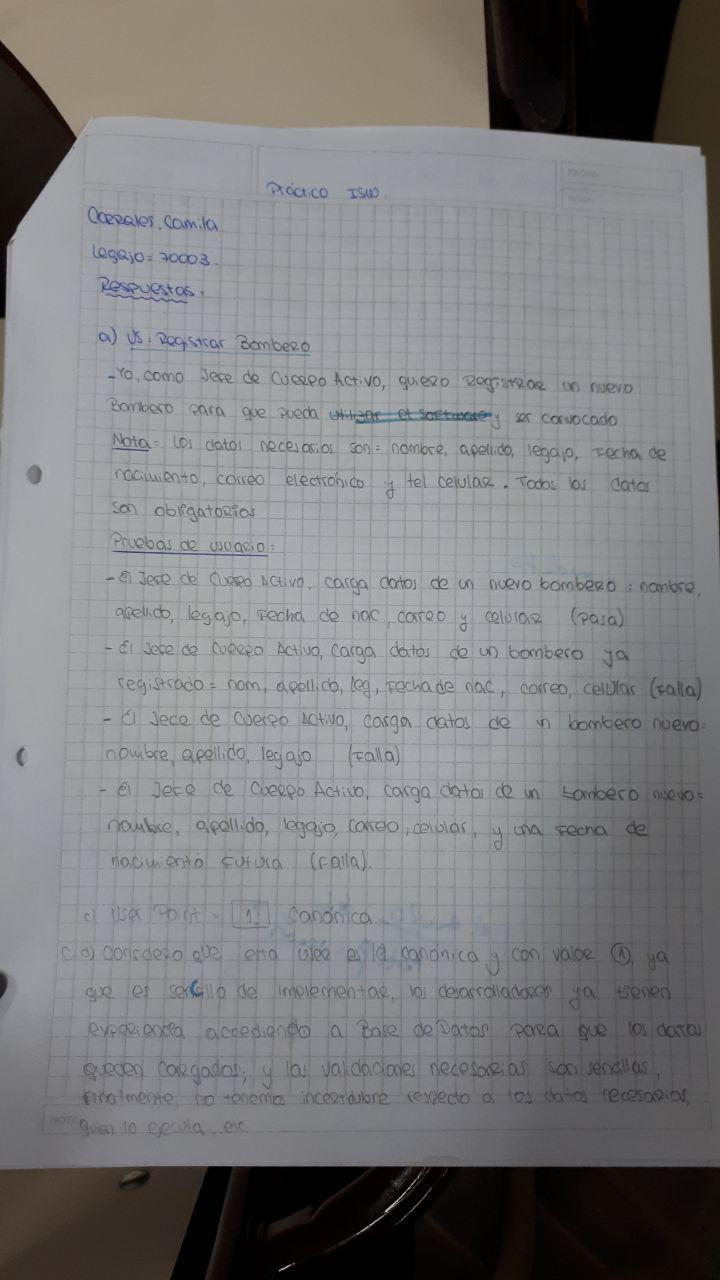 Práctico ISW.
Corrales, Camila
Legajo = 70003.
Respuestas.
a) US: Registrar Bombero
- Yo, como Jefe de Cuerpo Activo, quiero Registrar un nuevo
Bombero para que pueda utilizar el software y ser convocado
Nota = Los datos necesarios son = nombre, apellido, legajo, Fecha de
nacimiento, correo electrónico y tel celular. Todos los datos
son obligatorios
Pruebas de usuario =
- El Jefe de Cuerpo Activo, carga datos de un nuevo bombero : nombre,
apellido, legajo, Fecha de nac, correo y celular (Pasa)
- El Jefe de Cuerpo Activo, carga datos de un bombero ya
registrado = nom, apellido, leg, Fecha de nac, correo, celular (Falla)
- El Jefe de Cuerpo Activo, carga datos de un bombero nuevo =
nombre, apellido, legajo (Falla)
- El Jefe de Cuerpo Activo, carga datos de un bombero nuevo =
nombre, apellido, legajo, correo, celular, y una Fecha de
nacimiento Futura (Falla).
c) User Point = 1 Canónica.
C.a) Considero que esta user es la canónica y con valor 1, ya
que es sencillo de implementar, los desarrolladores ya tienen
experiencia accediendo a Base de Datos para que los datos
queden cargados, y las validaciones necesarias son sencillas,
Finalmente, no tenemos incertidubre respecto a los datos necesarios,
quien lo ejecuta, etc